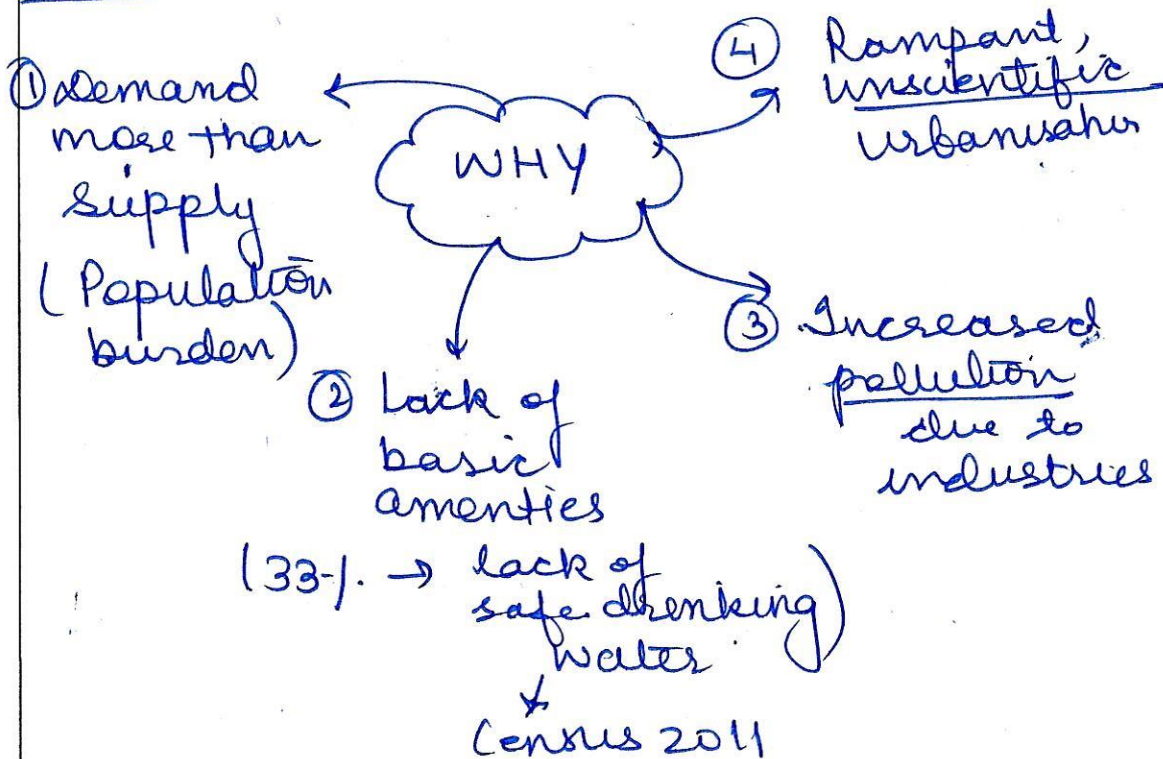 WHY
① Demand
more than
supply
(Population
burden)
② Lack of
basic
amenties
(33% → lack of
safe drenking
water)
Census 2011
③ Increased
pollution
due to
industries
④ Rampant,
unscientific
urbanisation